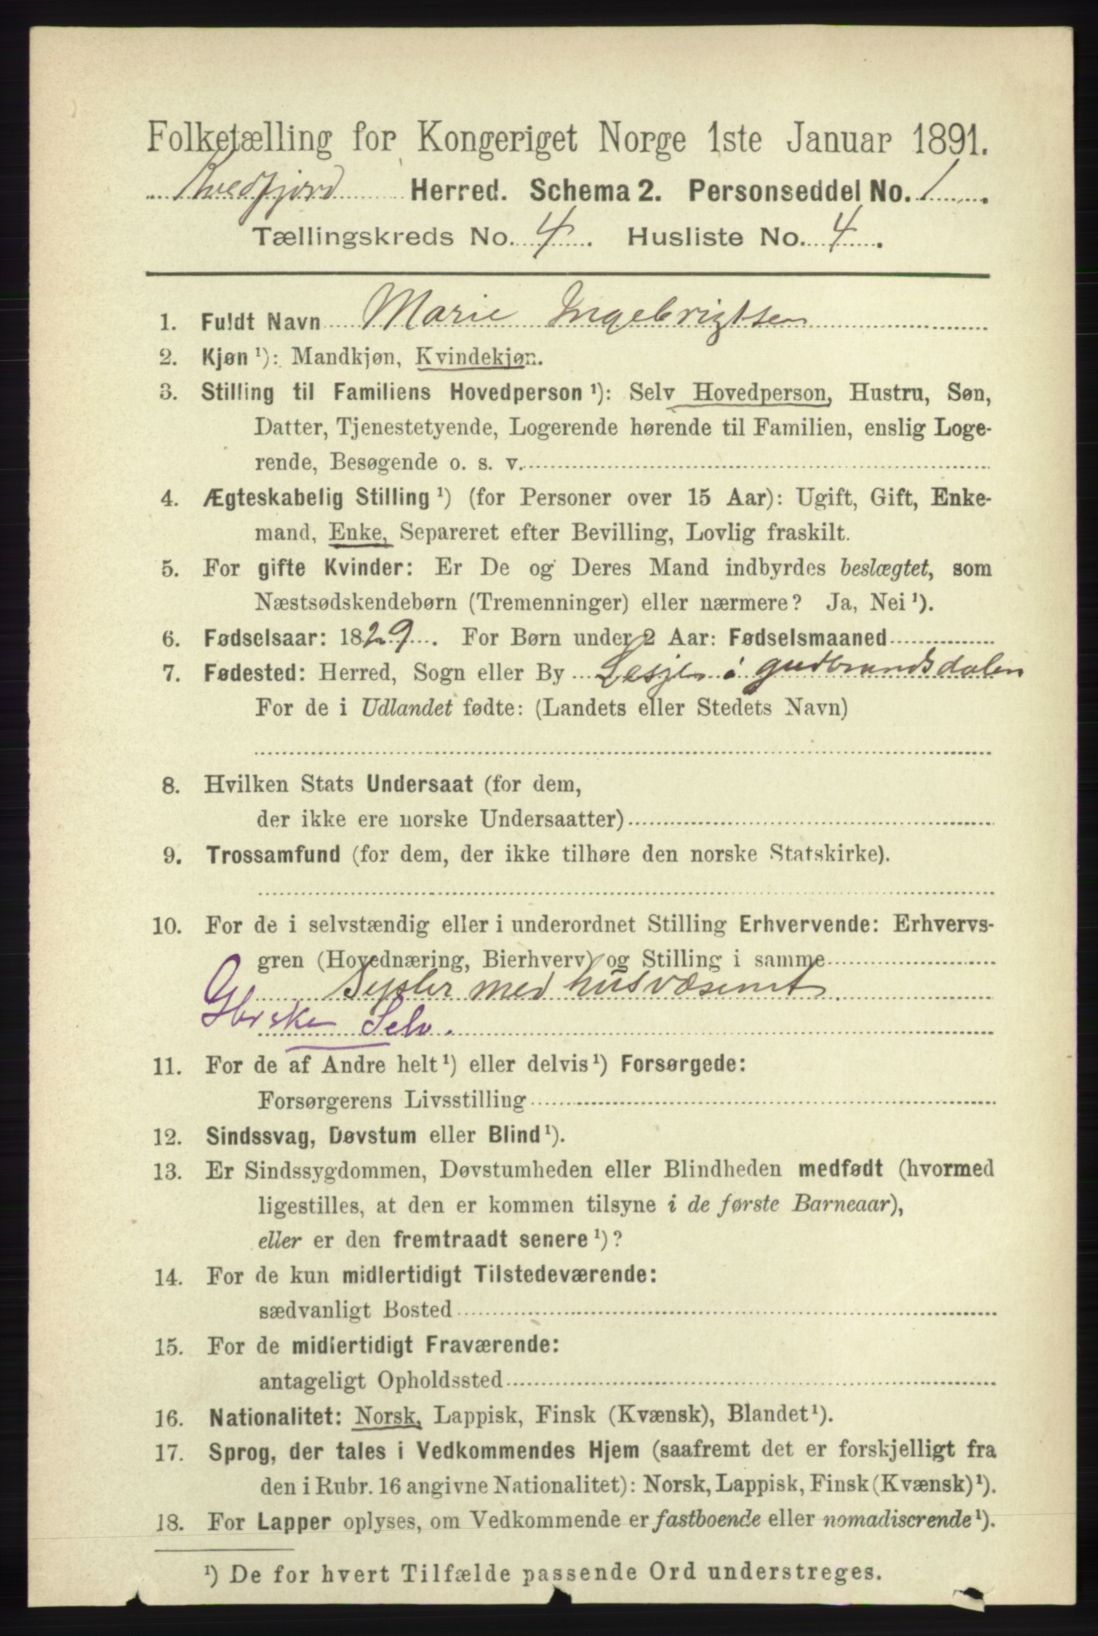 Folketælling for Kongeriget Norge 1ste Januar 1891.
Kvedfjord Herred. Schema 2. Personseddel No. 1.
Tællingskreds No. 4. Husliste No. 4.
1. Fuldt Navn Marie Ingebrigtsen
2. Kjøn ¹): Mandkjøn, Kvindekjøn.
3. Stilling til Familiens Hovedperson ¹): Selv Hovedperson, Hustru, Søn,
Datter, Tjenestetyende, Logerende hørende til Familien, enslig Loge-
rende, Besøgende o. s. v.
4. Ægteskabelig Stilling ¹) (for Personer over 15 Aar): Ugift, Gift, Enke-
mand, Enke, Separeret efter Bevilling, Lovlig fraskilt.
5. For gifte Kvinder: Er De og Deres Mand indbyrdes beslægtet, som
Næstsødskendebørn (Tremenninger) eller nærmere? Ja, Nei ¹).
6. Fødselsaar: 1829. For Børn under 2 Aar: Fødselsmaaned
7. Fødested: Herred, Sogn eller By Lesje i gudbrandsdalen
For de i Udlandet fødte: (Landets eller Stedets Navn)
8. Hvilken Stats Undersaat (for dem,
der ikke ere norske Undersaatter)
9. Trossamfund (for dem, der ikke tilhøre den norske Statskirke).
10. For de i selvstændig eller i underordnet Stilling Erhvervende: Erhvervs-
gren (Hovednæring, Bierhverv) og Stilling i samme
Sysler med husvæsenet
Selv.
11. For de af Andre helt ¹) eller delvis ¹) Forsørgede:
Forsørgerens Livsstilling
12. Sindssvag, Døvstum eller Blind ¹).
13. Er Sindssygdommen, Døvstumheden eller Blindheden medfødt (hvormed
ligestilles, at den er kommen tilsyne i de første Barneaar),
eller er den fremtraadt senere ¹)?
14. For de kun midlertidigt Tilstedeværende:
sædvanligt Bosted
15. For de midlertidigt Fraværende:
antageligt Opholdssted
16. Nationalitet: Norsk, Lappisk, Finsk (Kvænsk), Blandet ¹).
17. Sprog, der tales i Vedkommendes Hjem (saafremt det er forskjelligt fra
den i Rubr. 16 angivne Nationalitet): Norsk, Lappisk, Finsk (Kvænsk) ¹).
18. For Lapper oplyses, om Vedkommende er fastboende eller nomadiserende ¹).
¹) De for hvert Tilfælde passende Ord understreges.